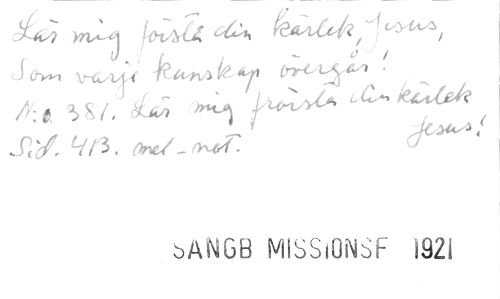 Lär mig förstå din kärlek, Jesus,
Som varje kunskap övergår!
N:o 381. Lär mig förstå din kärlek
Jesus!
Sid. 413. mel-not.
SANGB MISSIONSF 1921